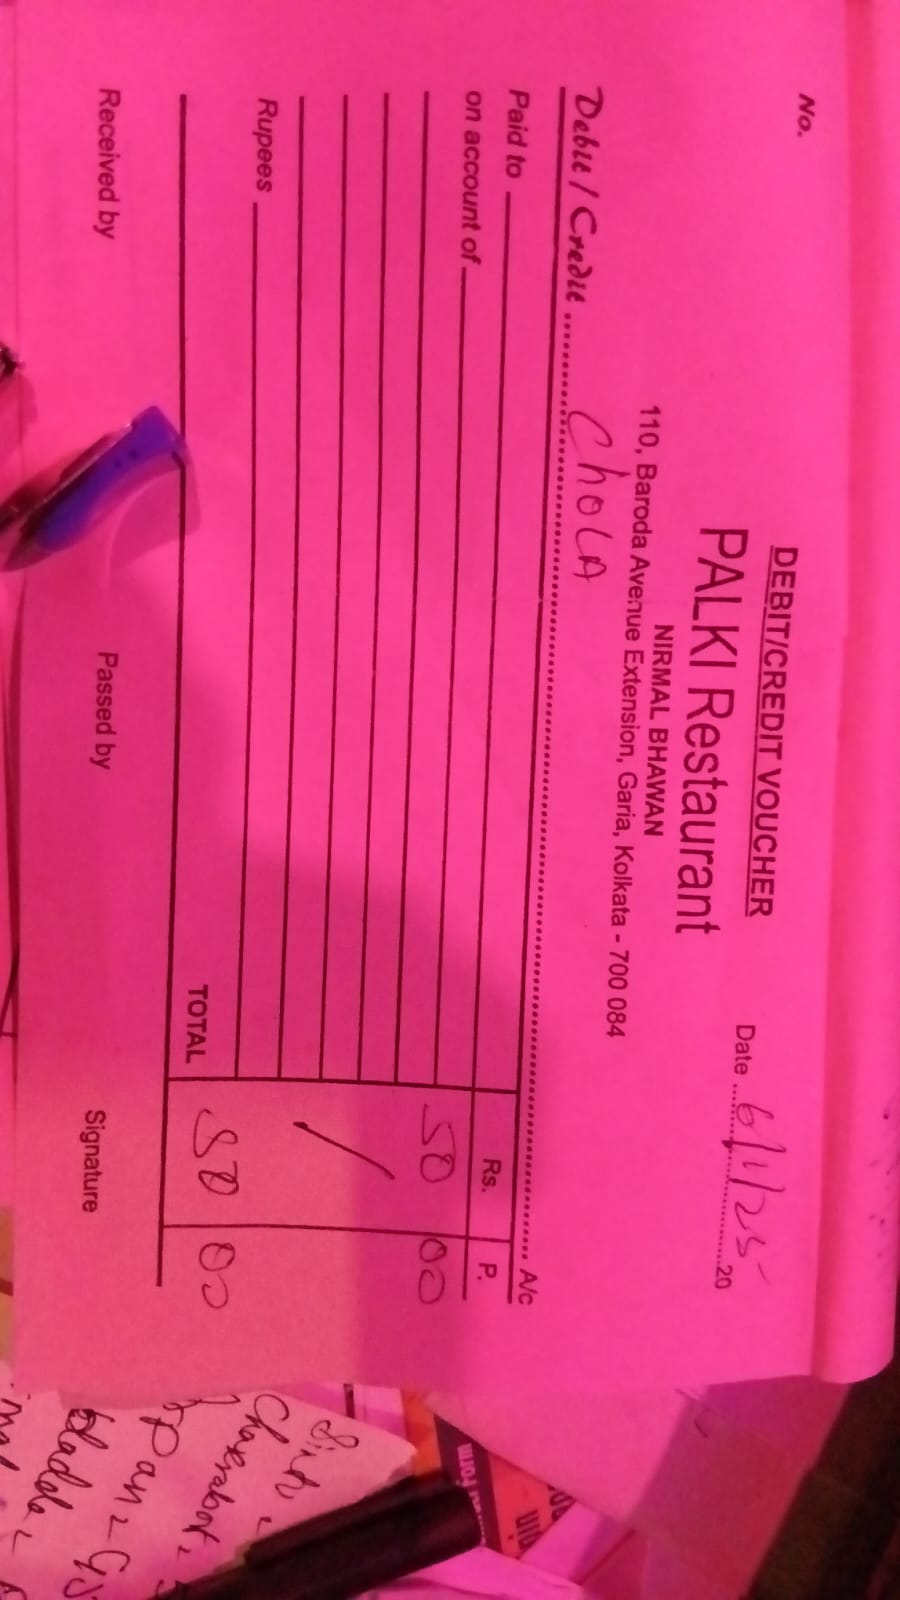 No.
DEBIT/CREDIT VOUCHER
PALKI Restaurant
NIRMAL BHAWAN
110, Baroda Avenue Extension, Garia, Kolkata - 700 084
Date 6/11/25 20
Debit / Credit CHOLA A/c
Paid to Rs. P.
on account of 50 00
Rupees
TOTAL 50 00
Received by Passed by Signature